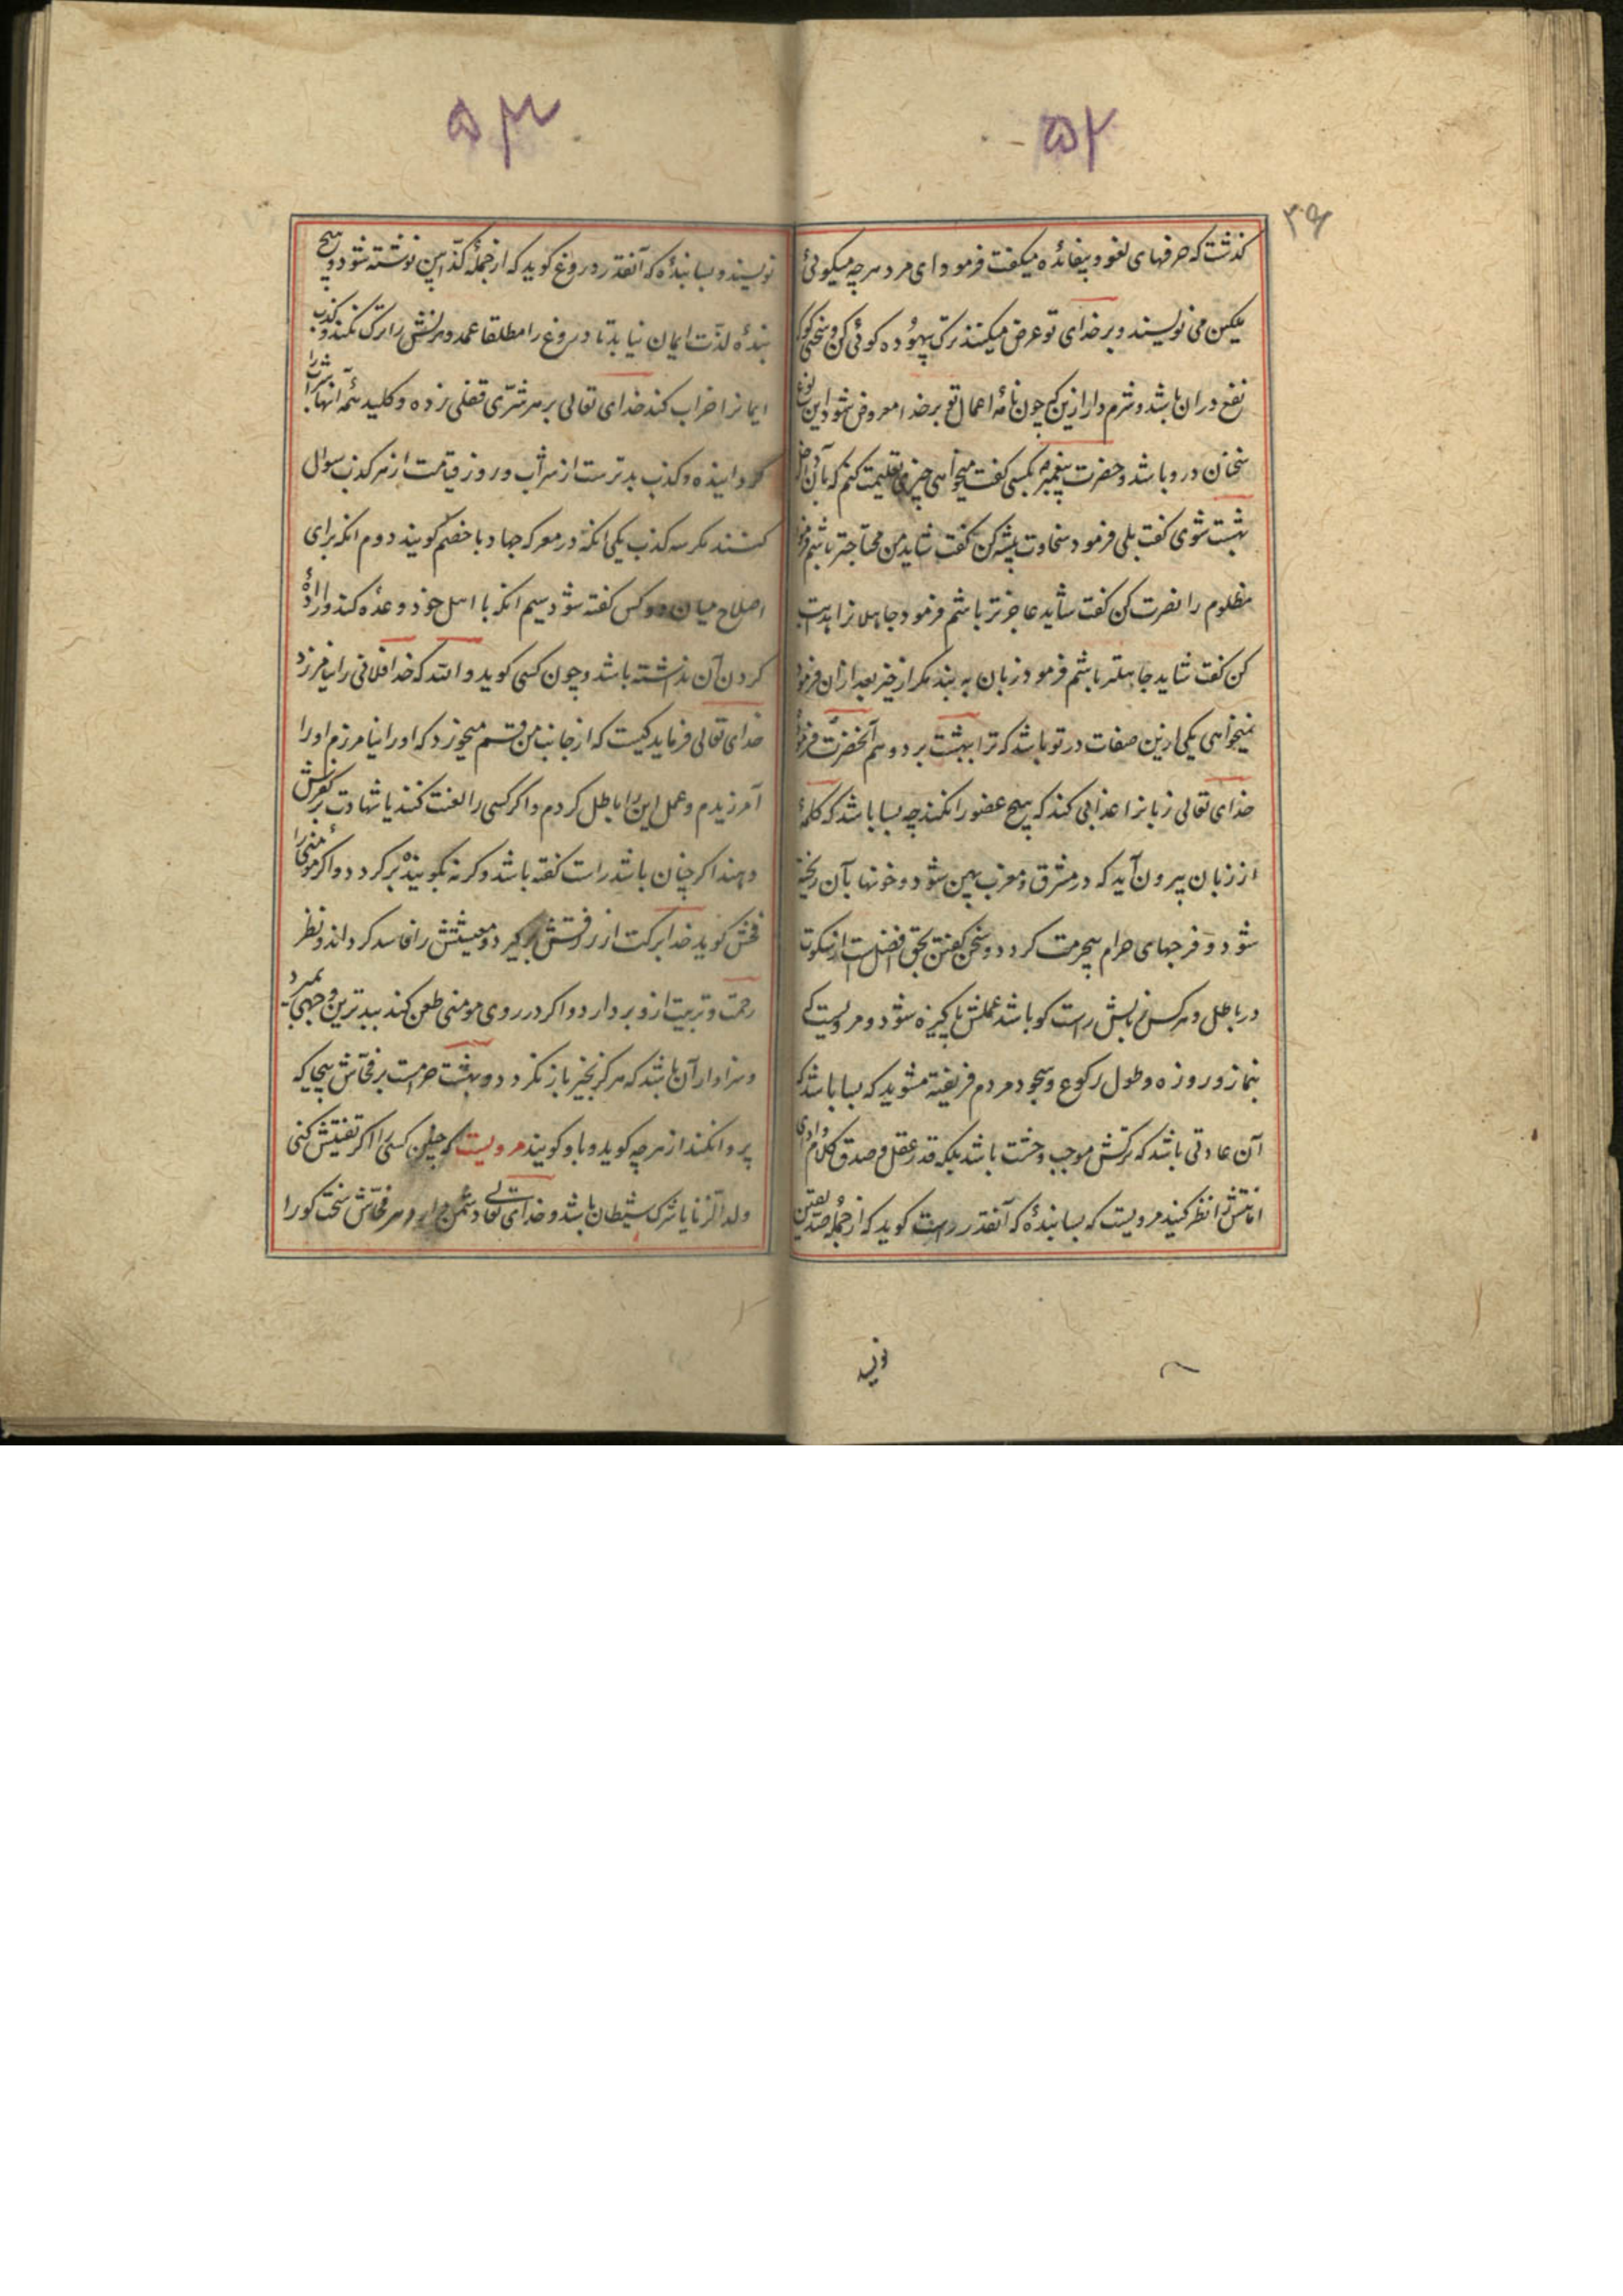 ۵۲
۳۹
گذشت که حرفهای لغو و بیفائده میگفت فرمود ای مرد هر چه میگوئی
ملکین می نویسند و بر خدای تو عرض میکنند ترک بیهوده گوئی کن و سخنی گوی که
نفع در ان باشد و شرم دار ازین که چون نامهٔ اعمال تو بر خدا معروض شود این نوع
سخنان در و باشد و حضرت پیغمبر بکسی گفت میخواهی چیزی تعلیمت کنم که بآن داخل
بهشت شوی گفت بلی فرمود سخاوت پیشه کن گفت شاید من محتاجتر باشم فرمود
مظلوم را نصرت کن گفت شاید عاجزتر باشم فرمود جاهلانرا هدایت
کن گفت شاید جاهلتر باشم فرمود زبان به بند مگر از خیر بعد ازان فرمود
نمیخواهی یکی ازین صفات در تو باشد که ترا ببهشت برد و هم آنحضرت فرمود
خدای تعالی زبانرا عذابی کند که هیچ عضو را نکند چه بسا باشد که کلمهٔ
از زبان بیرون آید که در مشرق و مغرب پهن شود و خونها بآن ریخته
شود و فرجهای حرام بیحرمت گردد و سخن گفتن بحق افضل است از سکوت
در باطل و هر کس زبانش راست گو باشد عملش پاکیزه شود و مرویست که
بنماز و روزه و طول رکوع و سجود مردم فریفته مشوید که بسا باشد که
آن عادتی باشد که ترکش موجب وحشت باشد بلکه قدر عقل و صدق کلام و ادای
امانتش را نظر کنید مرویست که بسا بندهٔ که آنقدر راست گوید که از جملهٔ صدیقین
نویسـ
۵۳
نویسند و بسا بندهٔ که آنقدر دروغ گوید که از جملهٔ کذابین نوشته شود و هیچ
بندهٔ لذّت ایمان نیابد تا دروغ را مطلقا عمد و هزلش را ترک نکند و کذب
ایمانرا خراب کند خدای تعالی بر هر شرّی قفلی زده و کلید همهٔ آنها شراب را
گردانیده و کذب بدتر ست از شراب و روز قیامت از هر کذب سوال
کنند مگر سه کذب یکی انکه در معرکه جهاد با خصم گویند دوم انکه برای
اصلاح میان دو کس گفته شود سیم انکه با اهل خود وعده کند و ارادهٔ
کردن آن نداشته باشد و چون کسی گوید والله که خدا فلانی را نیامرزد
خدای تعالی فرماید کیست که از جانب من قسم میخورد که او را نیامرزم او را
آمرزیدم و عمل این را باطل کردم و اگر کسی را لعنت کنند یا شهادت بر کفرش
دهند اگر چنان باشد راست گفته باشد و گرنه بگوینده برگردد و اگر مؤمنی را
فحش گوید خدا برکت از رزقش برگیرد و معیشتش را فاسد گرداند و نظر
رحمت و تربیت ازو بردارد و اگر در روی مومنی طعن کند ببدترین وجهی بمیرد
و سزاوار آن باشد که هرگز بخیر باز نگردد و بهشت حرامست بر فحّاش بیحیا که
پروا نکند از هر چه گوید و باو گویند مرویست که چنین کسی را اگر تفتیش کنی
ولد الزنا یا شرک شیطان باشد و خدای تعالی دشمن دارد هر فحّاش سخت گو را